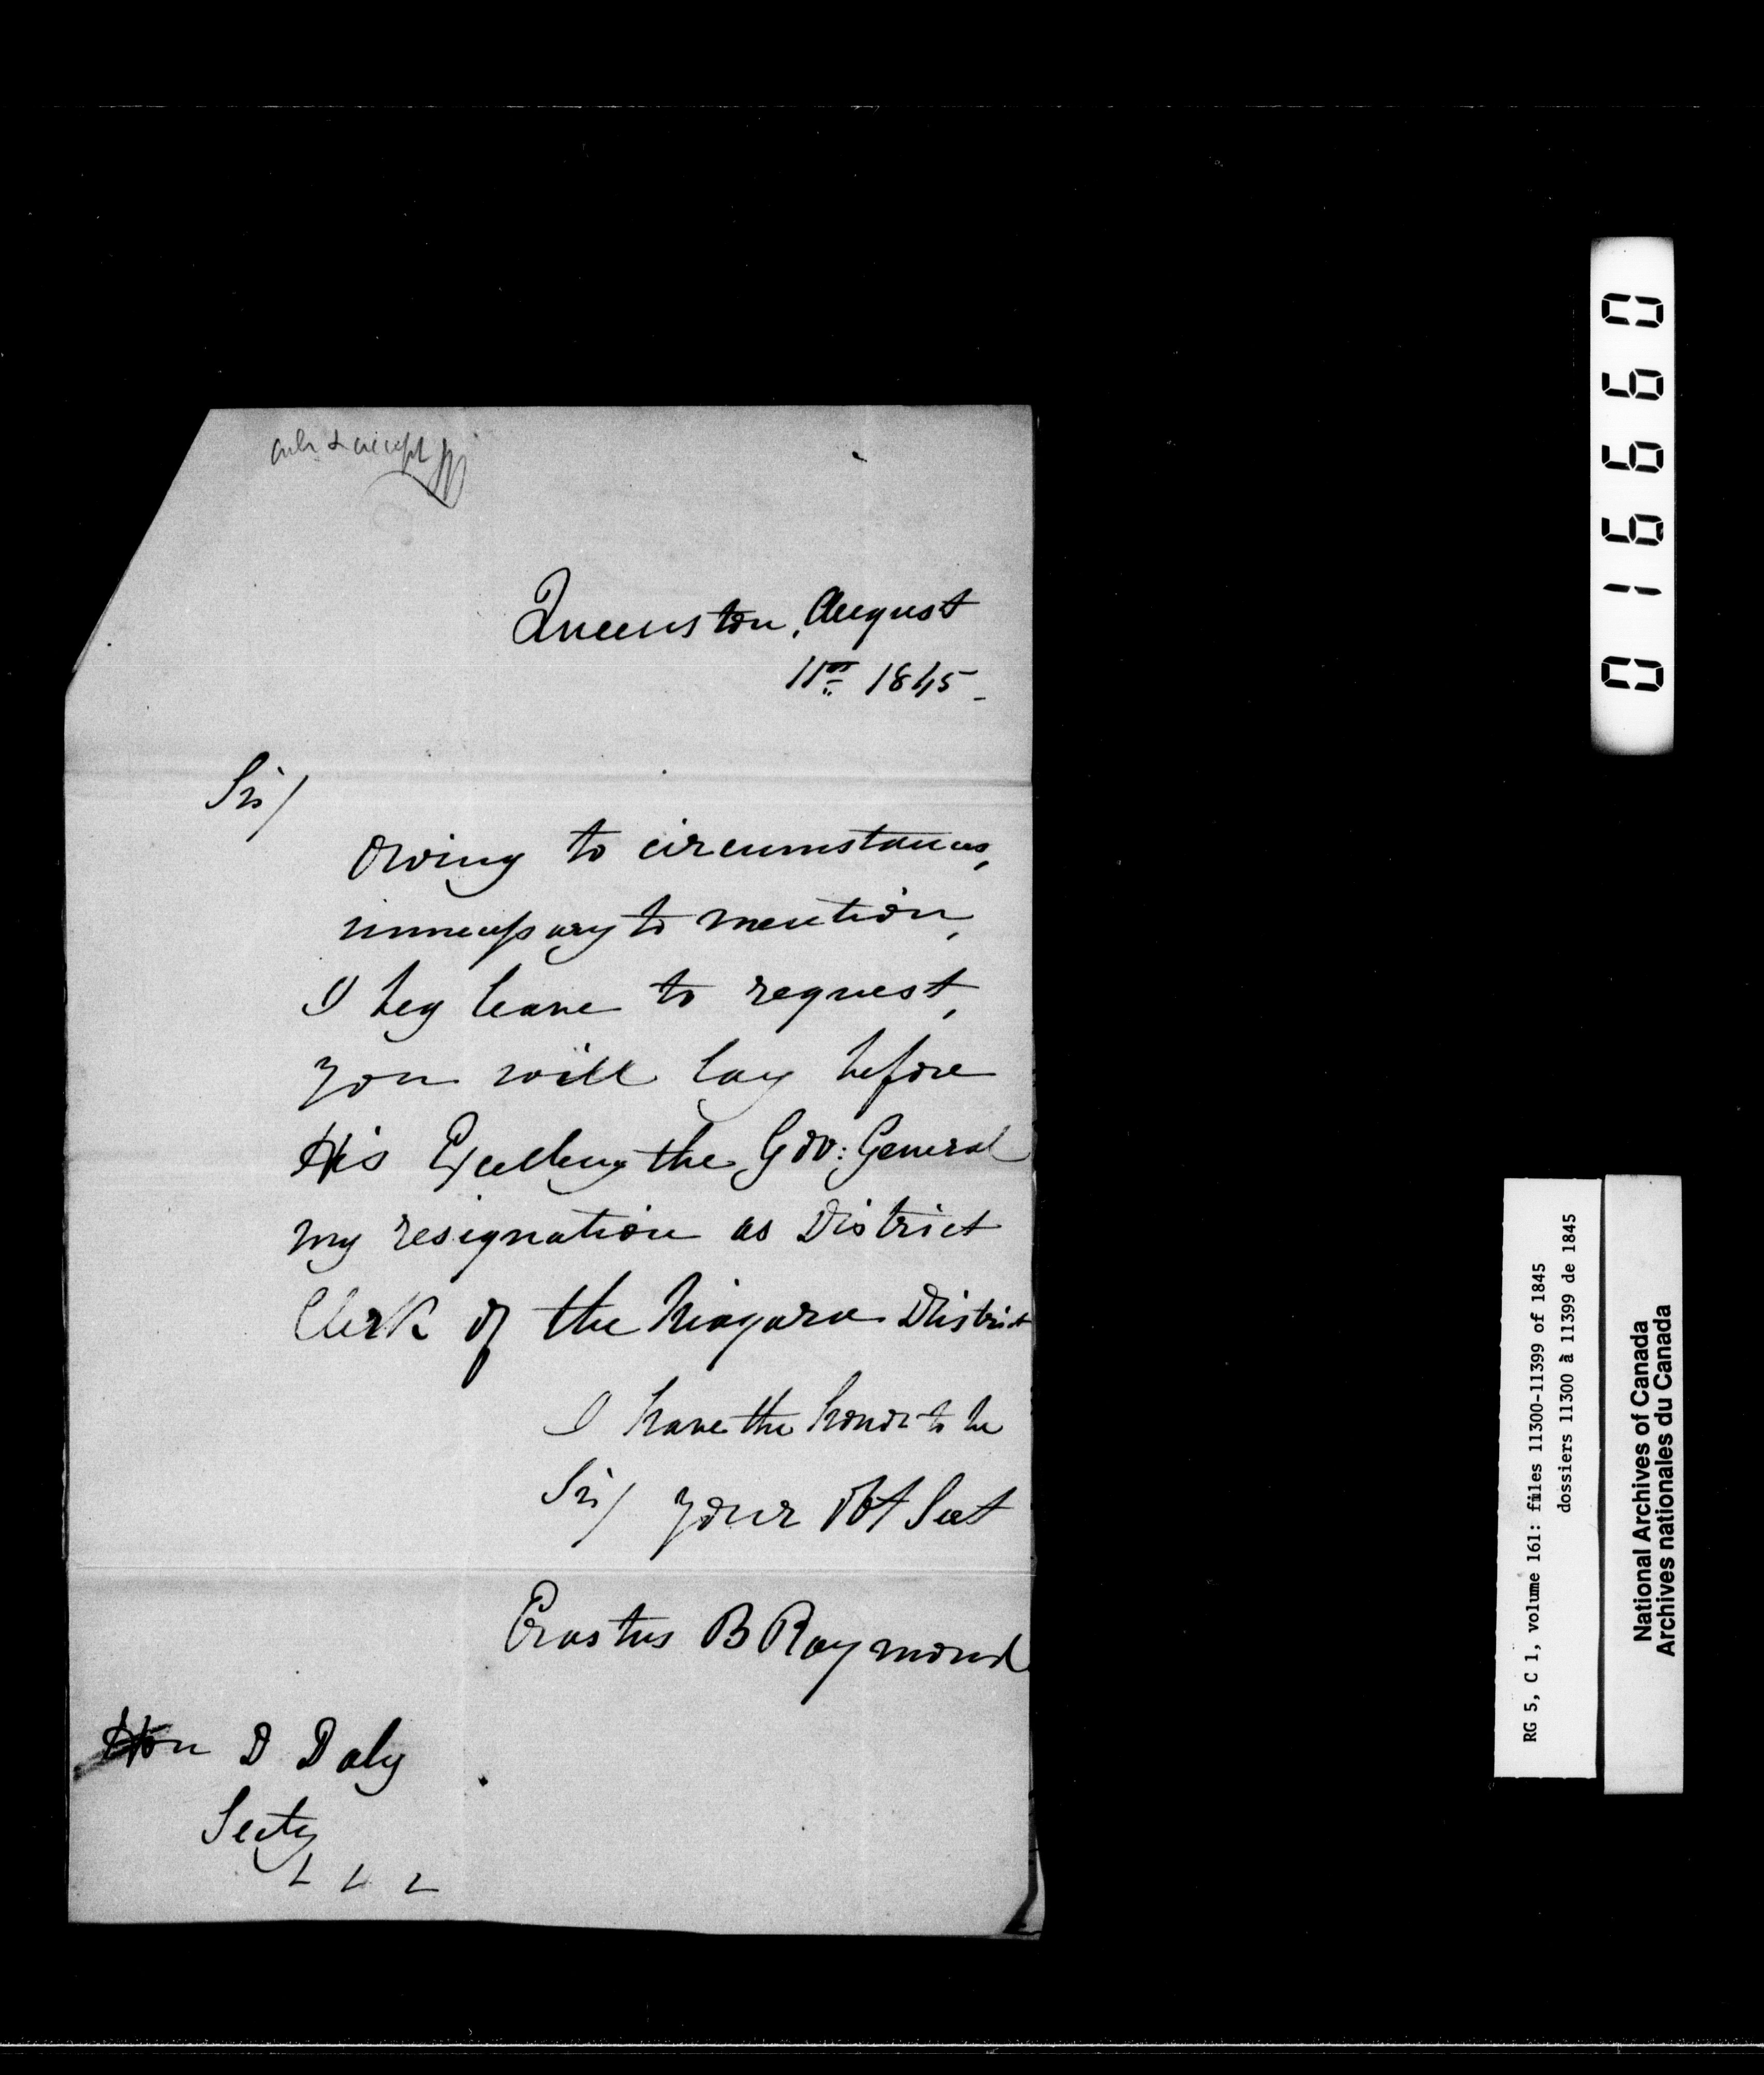 Queenston, August
11th 1845.
Sir/
Owing to circumstances,
unnecessary to mention,
I beg leave to request,
you will lay before
His Excellency the Gov: General
my resignation as District
Clerk of the Niagara District
I have the honor to be
Sir/ your Obt Sevt
Erastus B Raymond
Hon D Daly
Secty
016660
RG 5, C 1, volume 161: files 11300-11399 of 1845
dossiers 11300 à 11399 de 1845
National Archives of Canada
Archives nationales du Canada